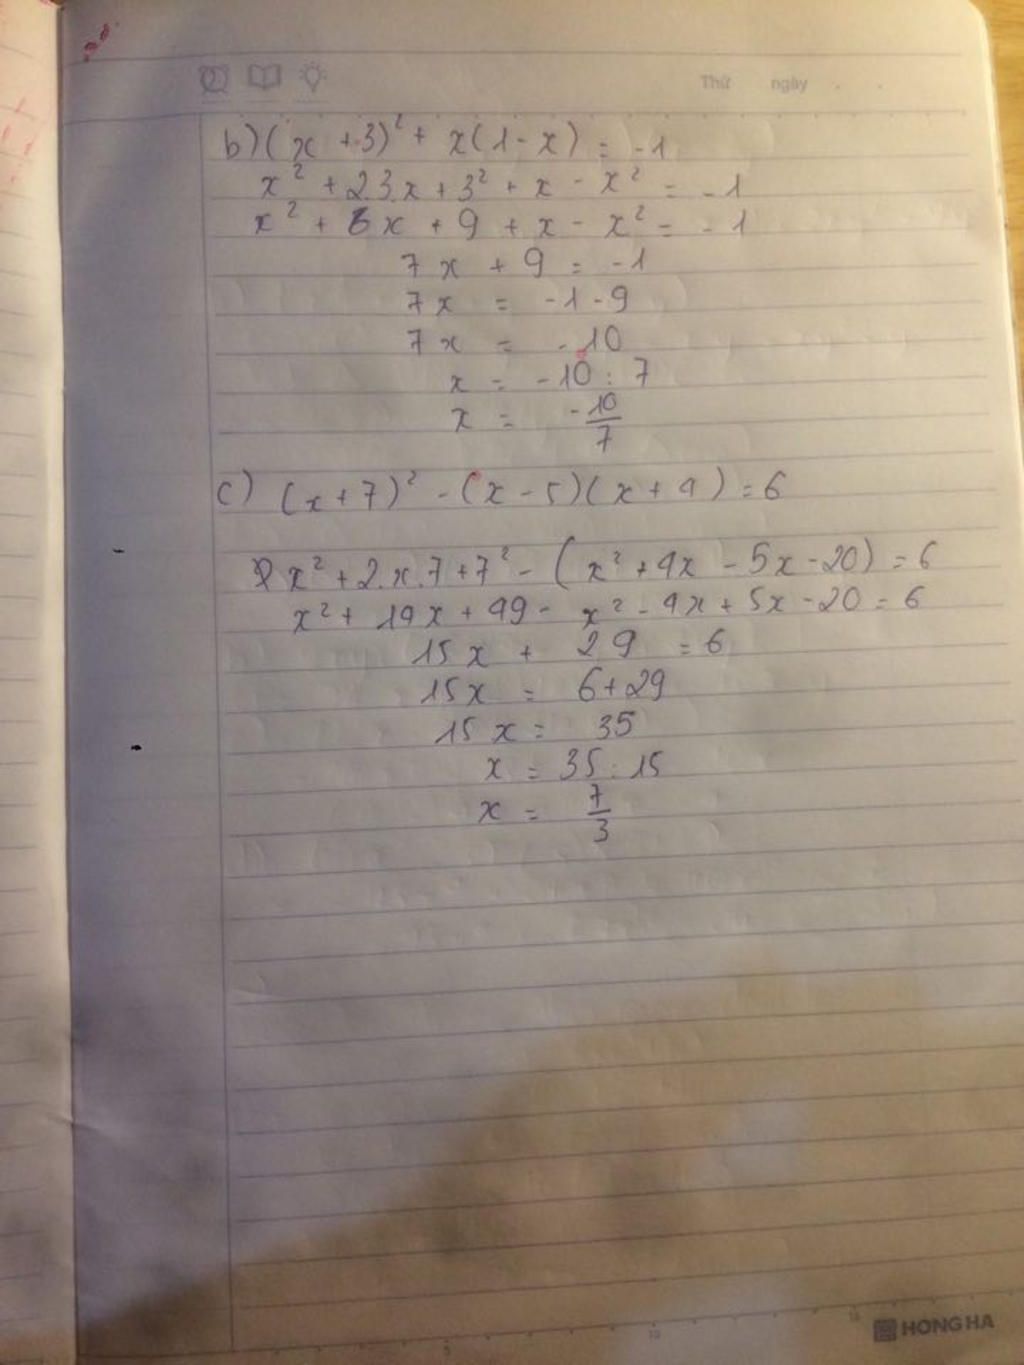 Thứ ngày
b) (x + 3)² + x(1 - x) = -1
x² + 2.3.x + 3² + x - x² = -1
x² + 6x + 9 + x - x² = -1
7x + 9 = -1
7x = -1 - 9
7x = -10
x = -10 : 7
x = -10/7
c) (x + 7)² - (x - 5)(x + 4) = 6
x² + 2.x.7 + 7² - (x² + 4x - 5x - 20) = 6
x² + 14x + 49 - x² - 4x + 5x - 20 = 6
15x + 29 = 6
15x = 6 + 29
15x = 35
x = 35 : 15
x = 7/3
HONG HA